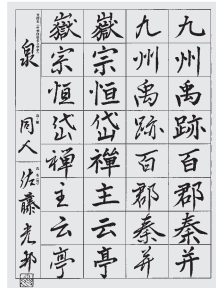 九州禹跡百郡秦并
九州禹跡百郡秦并
嶽宗恒岱禅主云亭
嶽宗恒岱禪主云亭
泉
同人
佐藤光邦